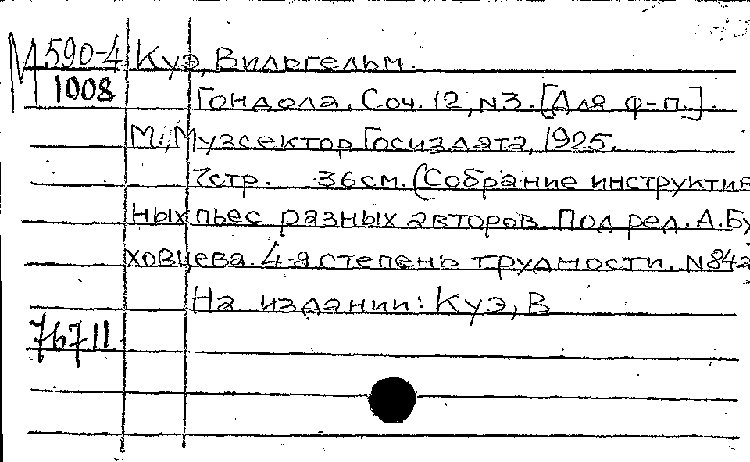 М 590-4 Куэ, Вильгельм.
1008 Гондола. Соч. 12, N3. [Для ф-п.].
М., Музсектор Госиздата, 1925.
7стр. 36см. (Собрание инструктив
ных пьес разных авторов. Под ред. А. Бу
ховцева. 4-я степень трудности. N 84а
На издании: Куэ, В
76711